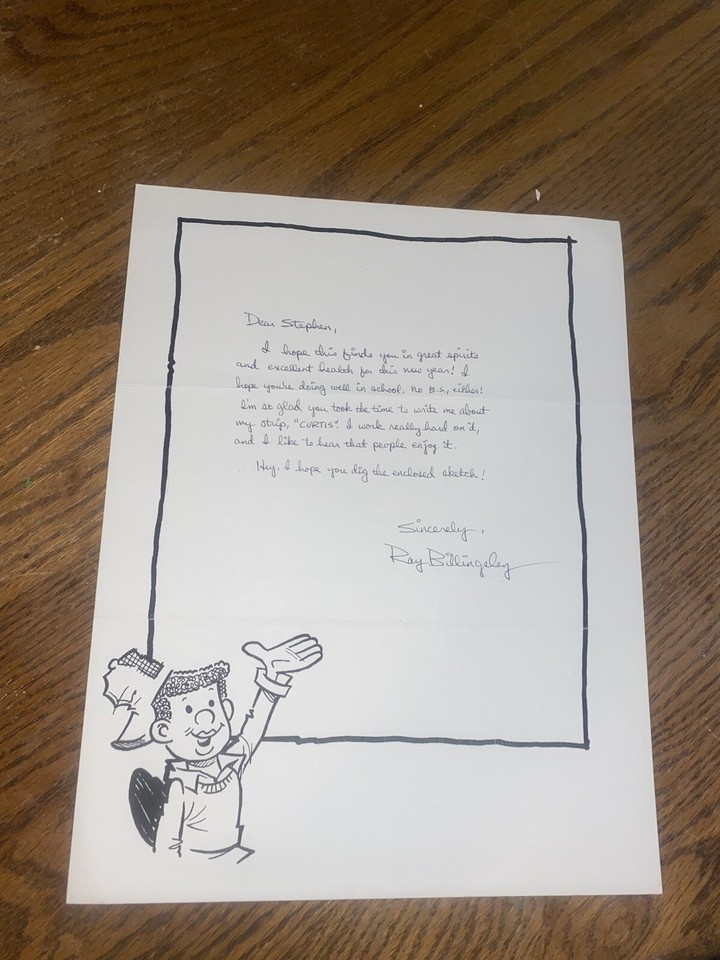 Dear Stephen,
I hope this finds you in great spirits
and excellent health for this new year! I
hope you're doing well in school. No B.S., either!
I'm so glad you took the time to write me about
my strip, "CURTIS". I work really hard on it,
and I like to hear that people enjoy it.
Hey, I hope you dig the enclosed sketch!
Sincerely,
Ray Billingsley